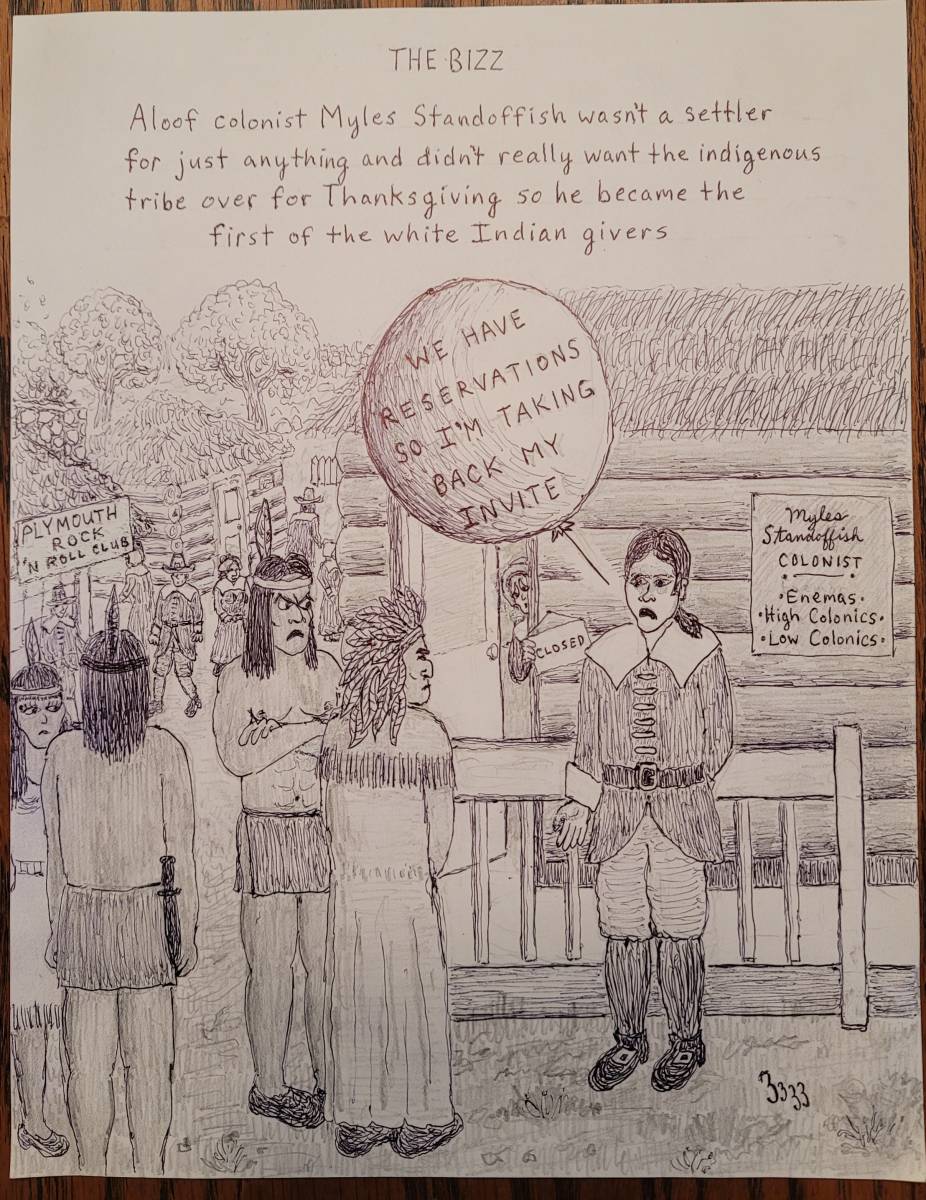 THE BIZZ
Aloof colonist Myles Standoffish wasn't a settler
for just anything and didn't really want the indigenous
tribe over for Thanksgiving so he became the
first of the white Indian givers
WE HAVE
RESERVATIONS
SO I'M TAKING
BACK MY
INVITE
PLYMOUTH
ROCK
'N ROLL CLUB
CLOSED
Myles
Standoffish
COLONIST
•Enemas•
•High Colonics•
•Low Colonics•